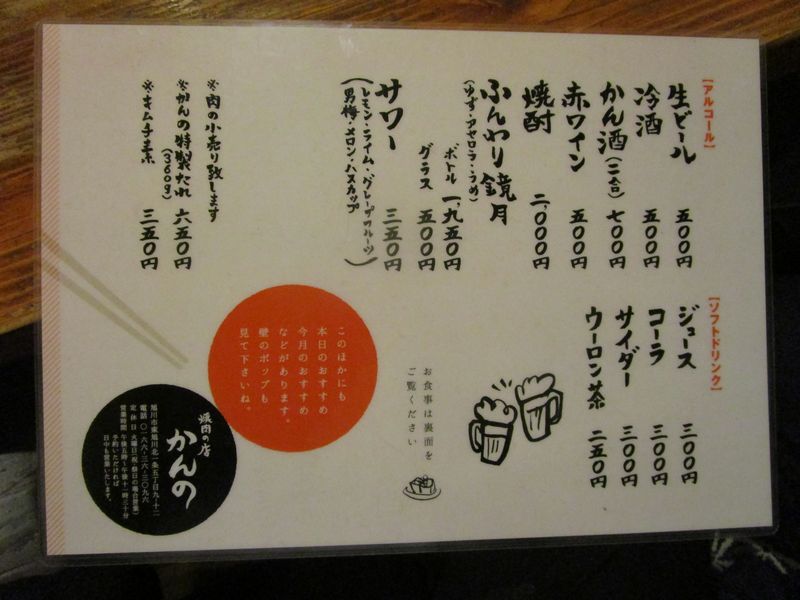 【アルコール】
生ビール 五〇〇円
冷酒 五〇〇円
かん酒(二合) 七〇〇円
赤ワイン 五〇〇円
焼酎 二、〇〇〇円
ふんわり鏡月
(ゆず・アセロラ・うめ)
ボトル 一、九五〇円
グラス 五〇〇円
サワー 三五〇円
(レモン・ライム・グレープフルーツ
男梅・メロン・ハスカップ)
※肉の小売り致します
※かんの特製たれ 六五〇円
(360g)
※キムチ素 三五〇円
【ソフトドリンク】
ジュース 三〇〇円
コーラ 三〇〇円
サイダー 三〇〇円
ウーロン茶 二五〇円
お食事は裏面を
ご覧ください
このほかにも
本日のおすすめ
今月のおすすめ
などがあります。
壁のポップも
見て下さいね。
焼肉の店
かんの
旭川市東旭川北一条五丁目九-十二
電話 〇一六六-三六-三〇九六
定休日 火曜日(祝・祭日の場合営業)
営業時間 午後五時~午後十一時三十分
予約いただければ
日中も営業いたします。